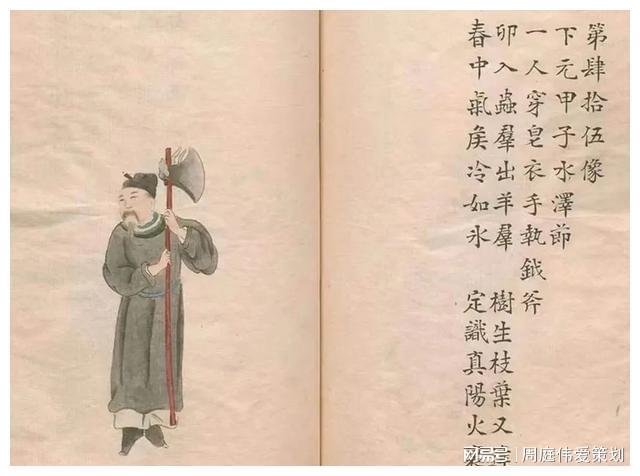 第肆拾伍像
下元甲子水澤節
一人穿皂衣手執鉞斧
卯入蟲羣出羊羣 樹生枝葉又
春中氣候冷如氷 定識真陽火
搜狐号|周庭伟爱策划